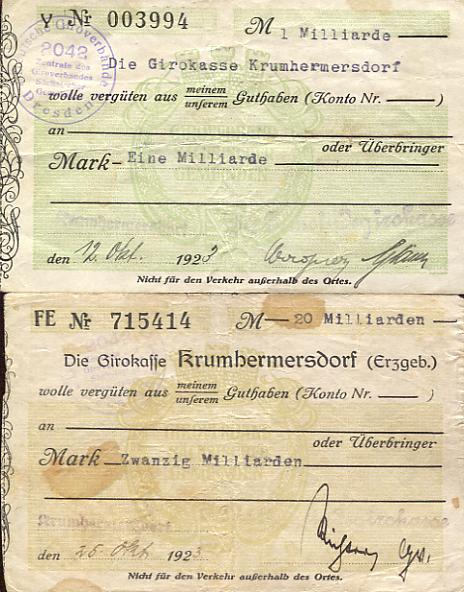 Y № 003994 M 1 Milliarde
Giroverbände
2042
Zentrale des
Giroverbandes
Dresden
Die Girokasse Krumhermersdorf
wolle vergüten aus meinem / unserem Guthaben (Konto Nr. — )
an
oder Überbringer
Mark — Eine Milliarde
Krumhermersdorf
den 12. Okt. 1923
Nicht für den Verkehr außerhalb des Ortes.
FE № 715414 M — 20 Milliarden —
Die Girokasse Krumhermersdorf (Erzgeb.)
wolle vergüten aus meinem / unserem Guthaben (Konto Nr. — )
an
oder Überbringer
Mark — Zwanzig Milliarden
Krumhermersdorf
den 25. Okt. 1923
Nicht für den Verkehr außerhalb des Ortes.